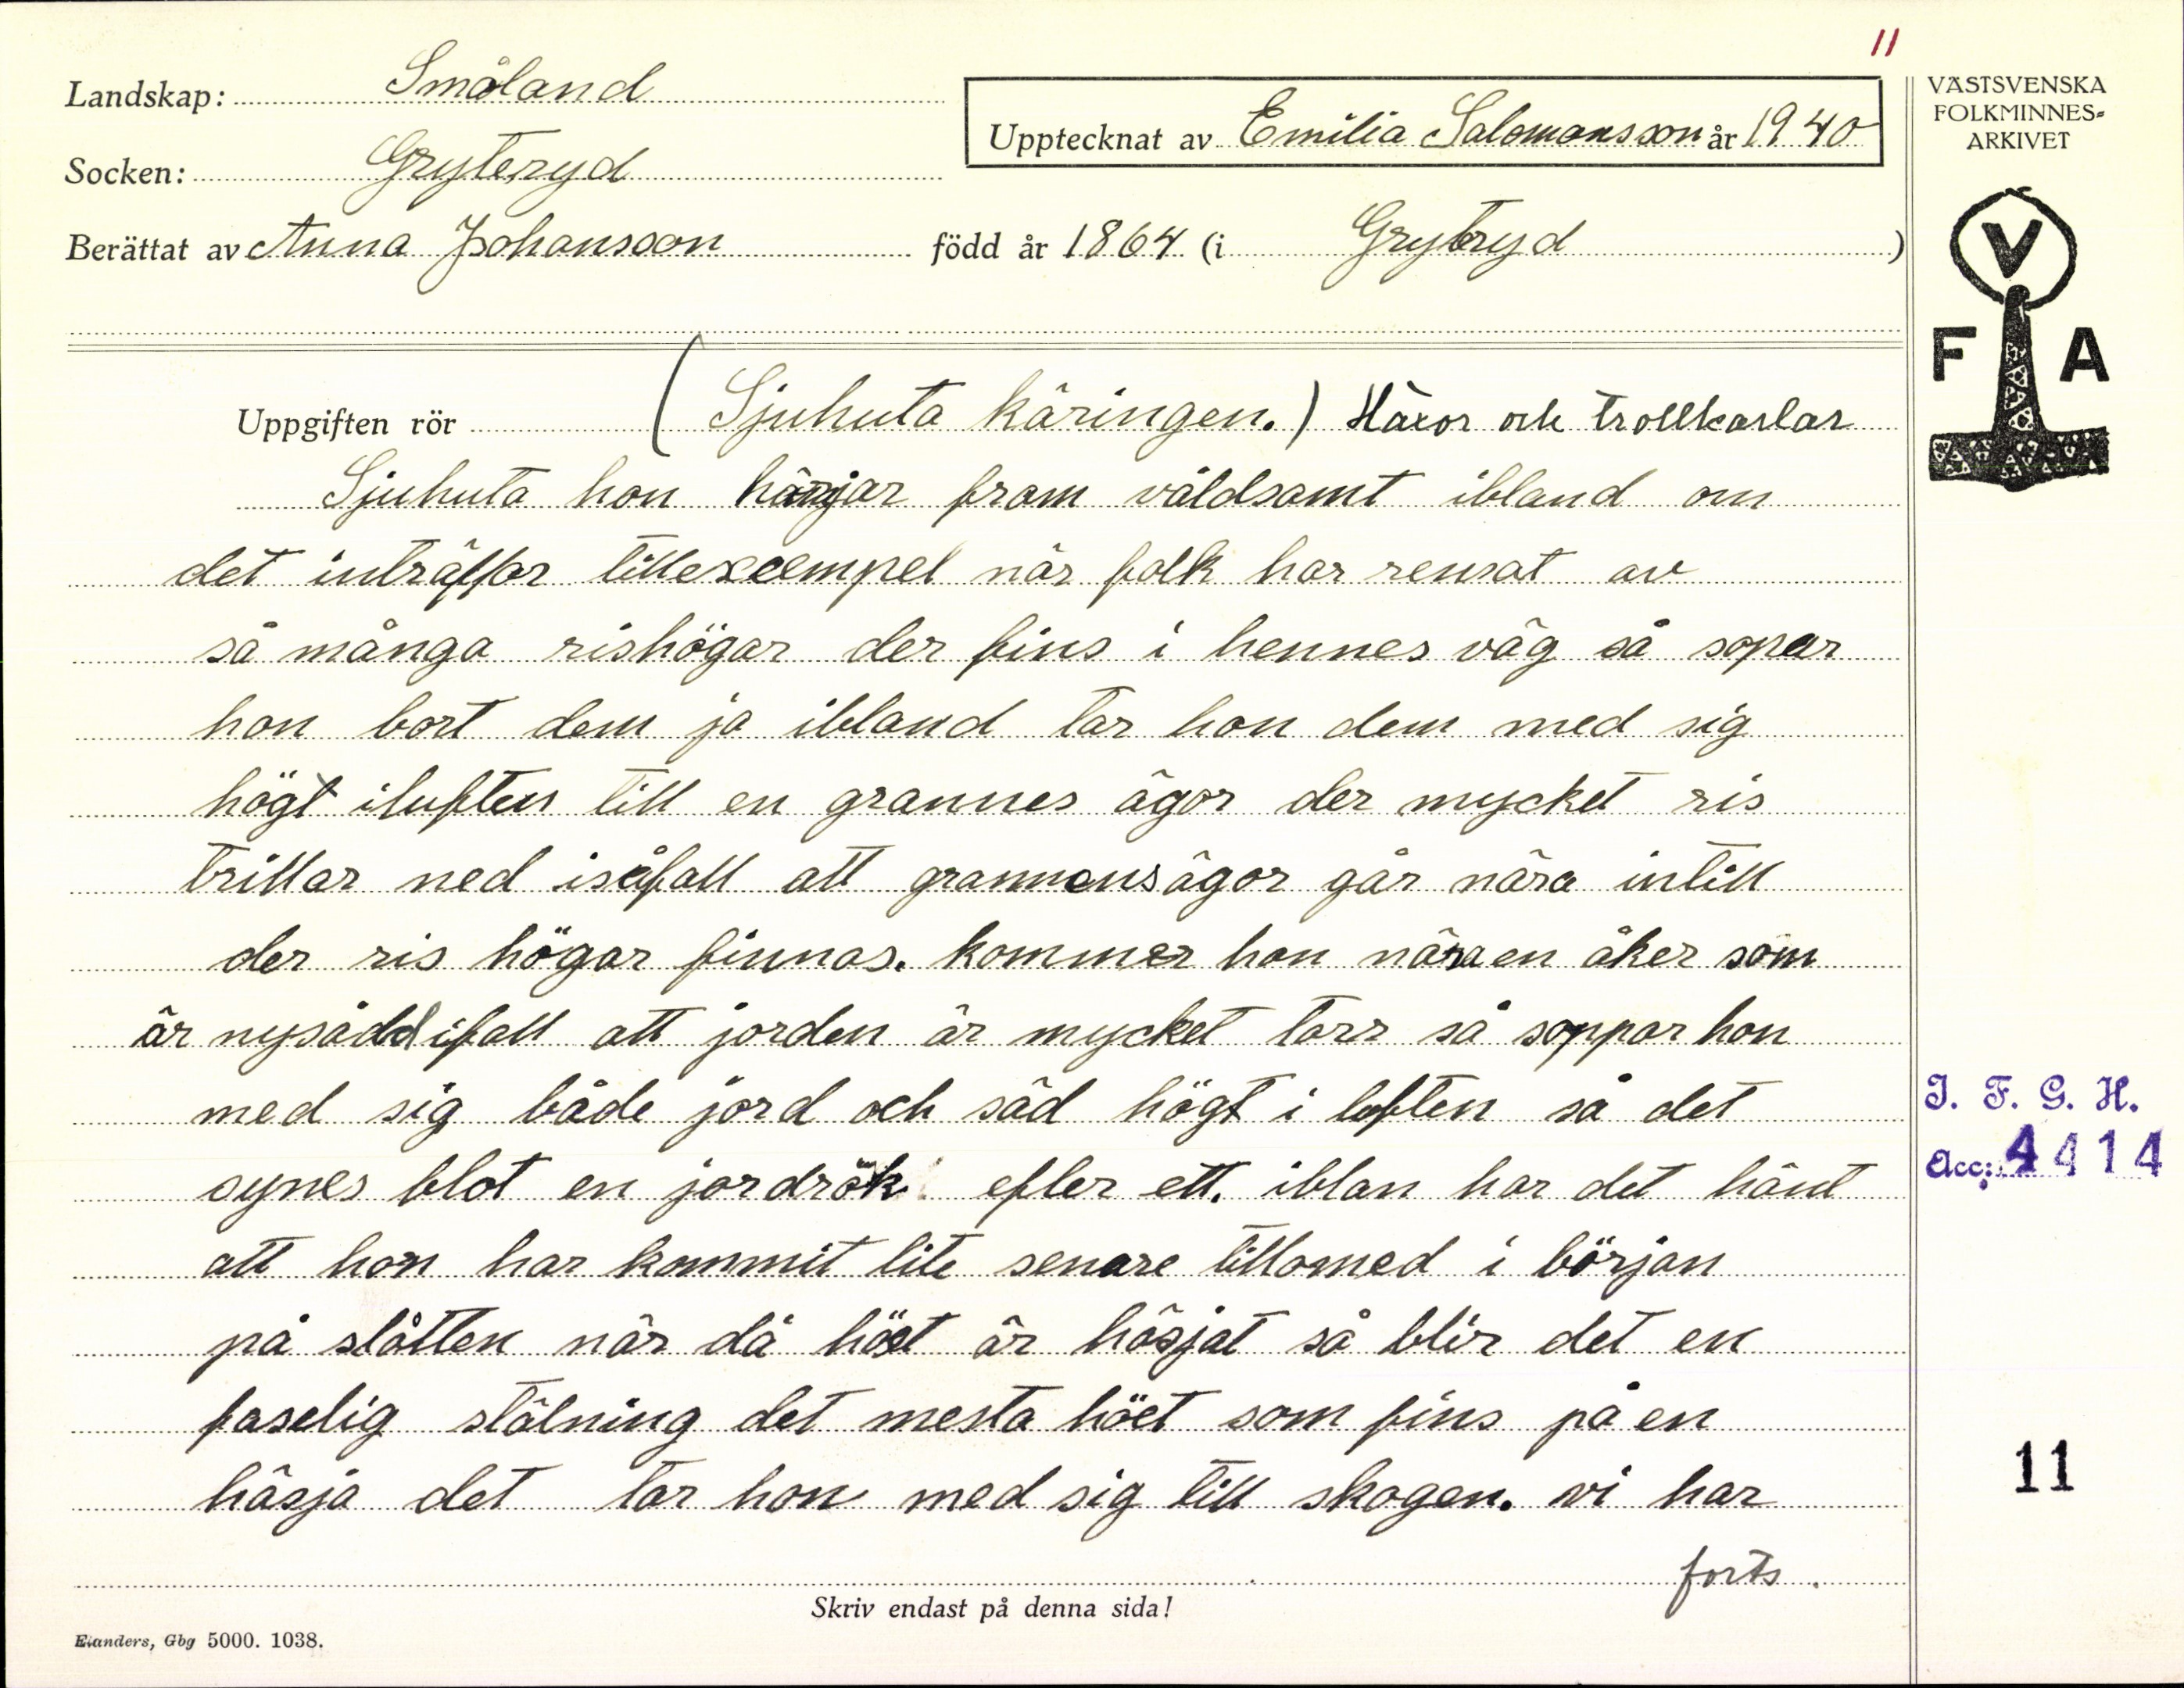 11
Landskap: Småland
Upptecknat av Emilia Salomonsson år 1940
VÄSTSVENSKA
FOLKMINNES-
ARKIVET
Socken: Gryteryd
Berättat av Anna Johansson född år 1864 (i Grytryd)
V
F A
Uppgiften rör (Sjuhuta käringen.) Häxor och trollkarlar
Sjuhuta hon härjar fram våldsamt ibland om
det inträffar tillexeempel när folk har rensat av
så många rishögar der fins i hennes väg så sopar
hon bort dem ja ibland tar hon dem med sig
högt iluften till en grannes ägor der mycket ris
trillar ned isåfall att grannens ägor går nära intill
der ris högar finnas. kommer hon nära en åker som
är nysådd ifall att jorden är mycket torr så soppar hon
med sig både jord och säd högt i luften så det
synes blot en jordrök efter ett. iblan har det hänt
att hon har kommit lite senare tillomed i början
på slåtten när då höet är häsjat så blir det en
faselig stälning det mesta höet som fins på en
häsja det tar hon med sig till skogen. vi har
forts.
I. F. G. H.
Acc: 4414
11
Skriv endast på denna sida!
Elanders, Gbg 5000. 1038.